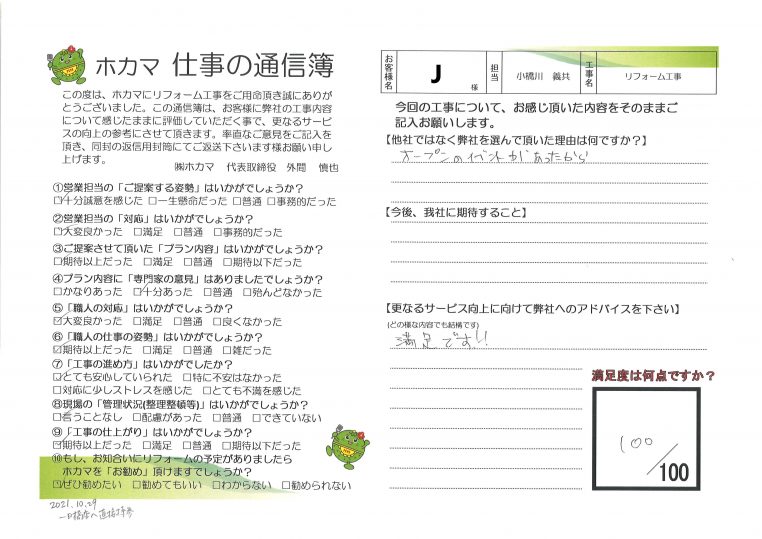 ホカマ 仕事の通信簿
この度は、ホカマにリフォーム工事をご用命頂き誠にありが
とうございました。この通信簿は、お客様に弊社の工事内容
について感じたままに評価していただく事で、更なるサービ
スの向上の参考にさせて頂きます。率直なご意見をご記入を
頂き、同封の返信用封筒にてご返送下さいます様お願い申し
上げます。
㈱ホカマ 代表取締役 外間 慎也
①営業担当の「ご提案する姿勢」はいかがでしょうか?
☑十分誠意を感じた □一生懸命だった □普通 □事務的だった
②営業担当の「対応」はいかがでしょうか?
☑大変良かった □満足 □普通 □事務的だった
③ご提案させて頂いた「プラン内容」はいかがでしょうか?
☑期待以上だった □満足 □普通 □期待以下だった
④プラン内容に「専門家の意見」はありましたでしょうか?
□かなりあった ☑十分あった □普通 □殆んどなかった
⑤「職人の対応」はいかがでしょうか?
☑大変良かった □満足 □普通 □良くなかった
⑥「職人の仕事の姿勢」はいかがでしょうか?
☑期待以上だった □満足 □普通 □雑だった
⑦「工事の進め方」はいかがでしたか?
☑とても安心していられた □特に不安はなかった
□対応に少しストレスを感じた □とても不満を感じた
⑧現場の「管理状況(整理整頓等)」はいかがでしょうか?
☑言うことなし □配慮があった □普通 □できていない
⑨「工事の仕上がり」はいかがでしょうか?
☑期待以上だった □満足 □普通 □期待以下だった
⑩もし、お知合いにリフォームの予定がありましたら
ホカマを「お勧め」頂けますでしょうか?
☑ぜひ勧めたい □勧めてもいい □わからない □勧められない
2021.10.29
お客様名 J 様 担当 小橋川 義共 工事名 リフォーム工事
今回の工事について、お感じ頂いた内容をそのままご
記入お願いします。
【他社ではなく弊社を選んで頂いた理由は何ですか?】
オープンのイベントがあったから
【今後、我社に期待すること】
【更なるサービス向上に向けて弊社へのアドバイスを下さい】
(どの様な内容でも結構です)
満足です!!
満足度は何点ですか?
100/100